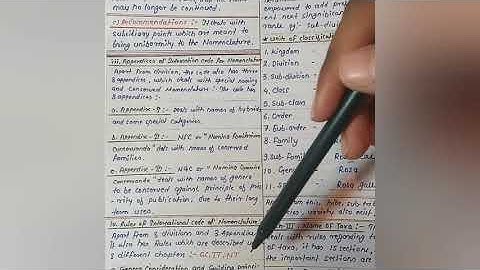 may no longer be continued.
c) Recommendations :- Deals with
subsidiary point which are meant to
bring uniformity to the Nomenclature.
iii. Appendices of International code for Nomenclature
Apart from division, the code also has three
appendices, which deals with special naming
and conserved Nomenclature. The code has
3 appendices :-
a. Appendix-I :- Deals with names of hybrids
and some special categories.
b. Appendix-II :- NFC or "Nomina Familiarum
Conservanda" deals with names of conserved
Families.
c. Appendix-III :- NGC or "Nomina Generica
Conservanda" deals with names of genera
to be conserved against principle of prio-
-rity of publication, due to their long
term uses.
iv. Rules of International code of Nomenclature
Apart from 3 divisions and 3 Appendices
is also has Rules which are described in
3 different chapters :- GC, TT, NT
a. General Consideration and Guiding princi-
empowered to add
* units of classific
1. Kingdom
2. Division -
3. Sub-division -
4. Class
5. Sub-Class
6. Order
7. Sub-order
8. Family -
9. Sub-Family
10. Gen
Rosa
Rosa gall
Name of Taxa :-
deals with rules regarding
of taxa, it has 15 section
the important sections are